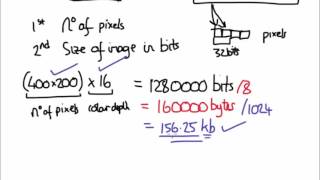 1st Nº of pixels
pixels
2nd Size of image in bits
32bits
(400x200) x 16 = 1280000 bits /8
nº of pixels color depth = 160000 bytes /1024
= 156.25 kb